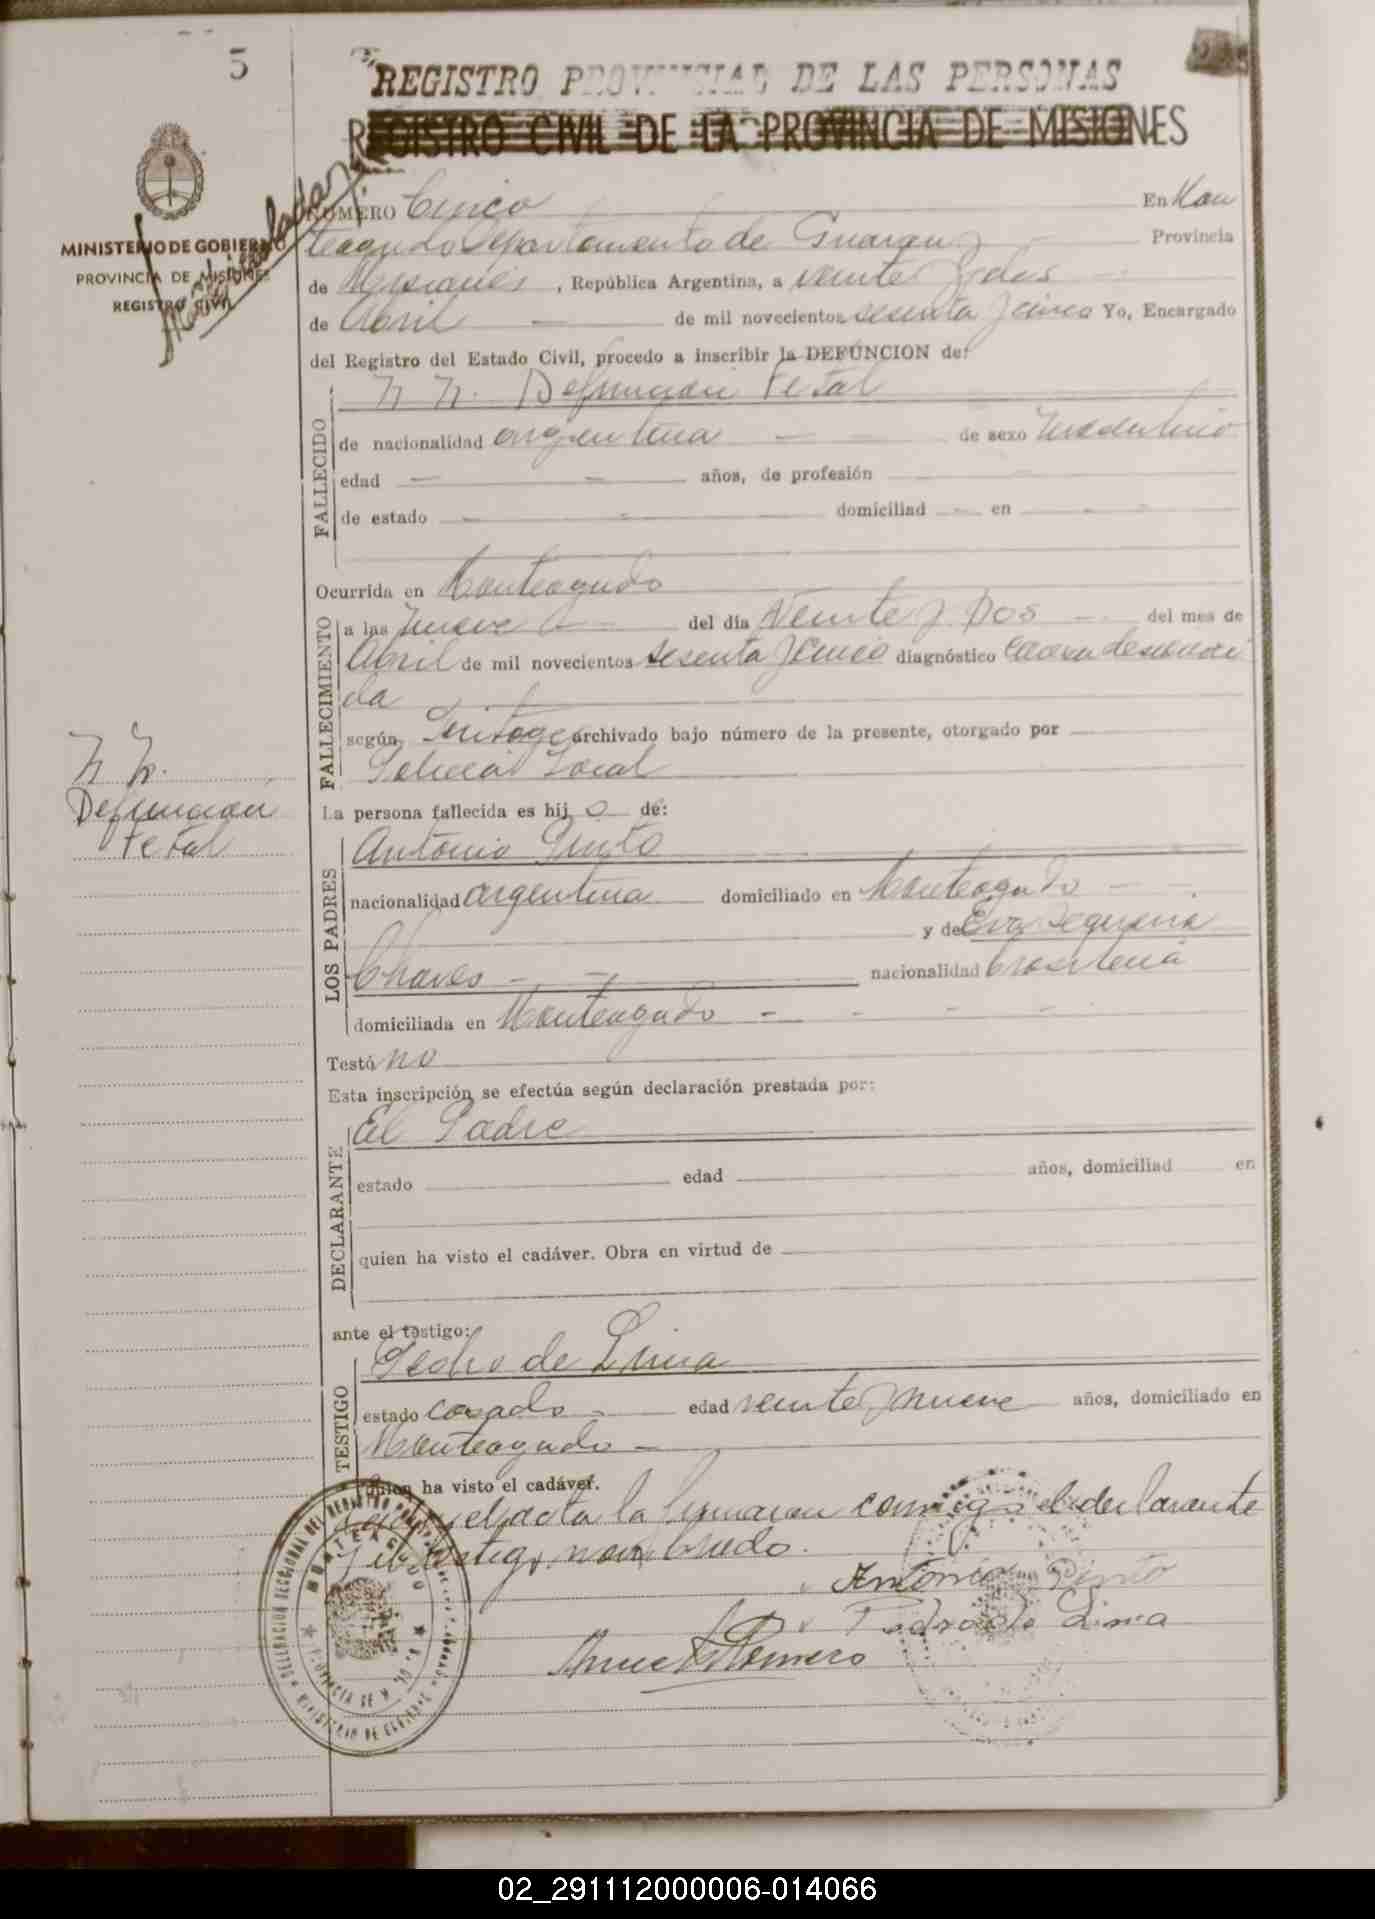 5
REGISTRO PROVINCIAL DE LAS PERSONAS
REGISTRO CIVIL DE LA PROVINCIA DE MISIONES
MINISTERIO DE GOBIERNO
PROVINCIA DE MISIONES
REGISTRO CIVIL
NÚMERO Cinco En Mon
teagudo Departamento de Guaraní Provincia
de Misiones, República Argentina, a veinte y dos
de Abril de mil novecientos sesenta y cinco Yo, Encargado
del Registro del Estado Civil, procedo a inscribir la DEFUNCION de:
FALLECIDO
N N. Defunción Fetal
de nacionalidad argentina de sexo masculino
edad años, de profesión
de estado domiciliad en
Ocurrida en Monteagudo
FALLECIMIENTO
a las nueve del día Veinte y Dos del mes de
Abril de mil novecientos sesenta y cinco diagnóstico causa desconoci
da
según archivado bajo número de la presente, otorgado por
Policía Local
N N.
Defunción
Fetal
La persona fallecida es hij o de:
LOS PADRES
Antonio Pinto
nacionalidad argentina domiciliado en Monteagudo
y de Eva Sequeira
Chaves nacionalidad brasileña
domiciliada en Monteagudo
Testó no
Esta inscripción se efectúa según declaración prestada por:
DECLARANTE
el Padre
estado edad años, domiciliad en
quien ha visto el cadáver. Obra en virtud de
ante el testigo:
TESTIGO
Pedro de Lima
estado casado edad veinte y nueve años, domiciliado en
Monteagudo
quien ha visto el cadáver.
el acta la firmaron conmigo el declarante
y el testigo nombrado.
Antonio Pinto
Pedro de Lima
Romero
MONTEAGUDO
02_291112000006-014066